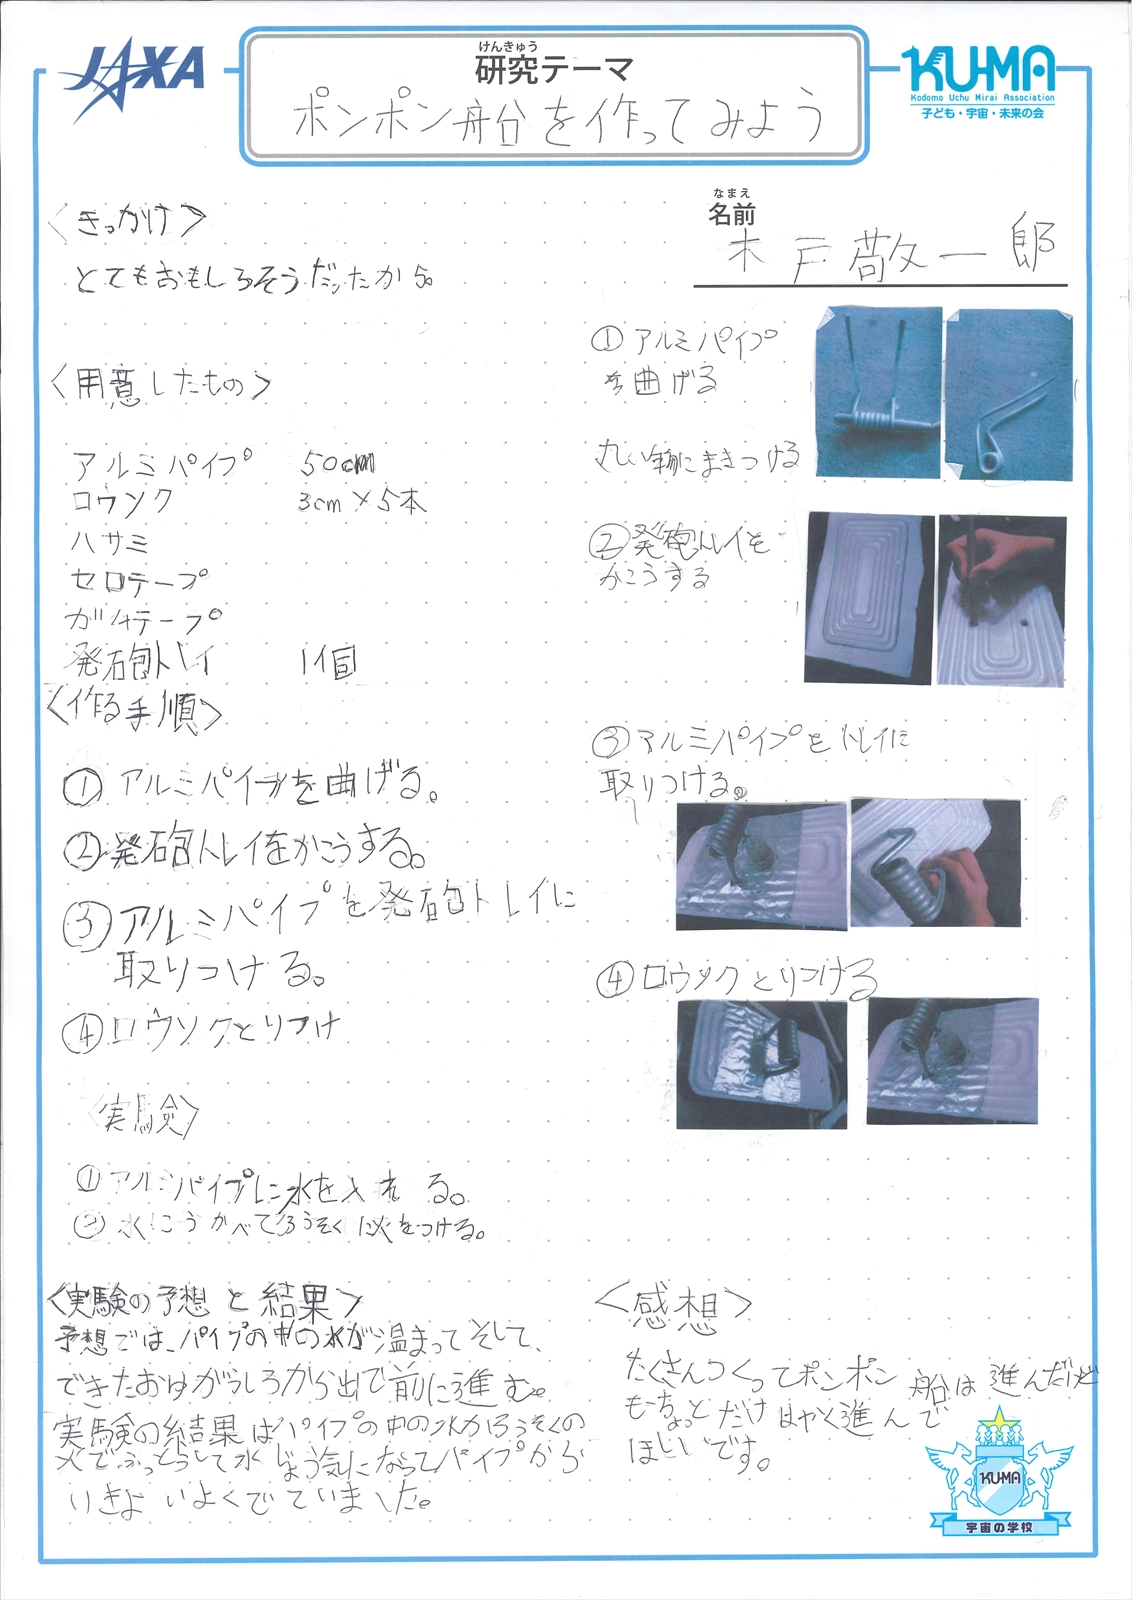 JAXA
けんきゅう
研究テーマ
ポンポン船を作ってみよう
KU-MA
Kodomo Uchu Mirai Association
子ども・宇宙・未来の会
なまえ
名前
木戸敬一郎
<きっかけ>
とてもおもしろそうだったから。
<用意したもの>
アルミパイプ 50cm
ロウソク 3cm×5本
ハサミ
セロテープ
ガムテープ
発砲トレイ 1個
<作る手順>
① アルミパイプを曲げる。
② 発砲トレイをかこうする。
③ アルミパイプを発砲トレイに
取りつける。
④ ロウソクとりつけ
<実験>
① アルミパイプに水を入れる。
② 水にうかべてろうそくに火をつける。
<実験の予想と結果>
予想では、パイプの中の水が温まってそして、
できたおゆがうしろから出で前に進む。
実験の結果はパイプの中の水がろうそくの
火でふっとうして水じょう気になってパイプから
いきよいよくでていました。
① アルミパイプ
を曲げる
丸い物にまきつける
② 発砲トレイを
かこうする
③ アルミパイプをトレイに
取りつける。
④ ロウソクとりつける
<感想>
たくさんつくってポンポン船は進んだけど
もうちょっとだけはやく進んで
ほしいです。
KU-MA
宇宙の学校